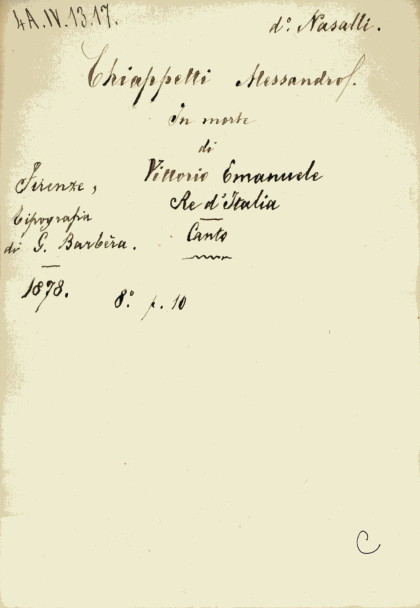 4A.IV.13.17.
d.° Nasalli.
Chiappelli Alessandro.
In morte
di
Vittorio Emanuele
Re d'Italia
Canto
Firenze,
tipografia
di G. Barbèra.
1878.
8.° p. 10
C